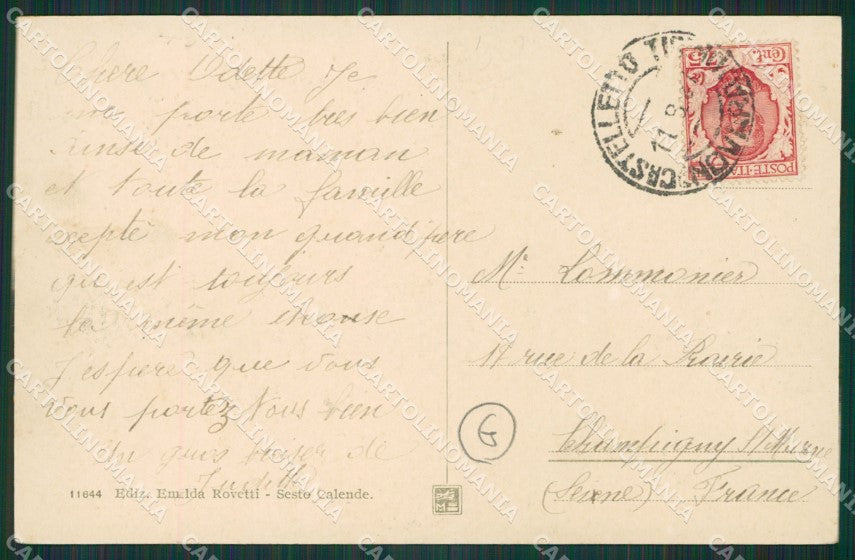 Chere Odette Je
me porte tres bien
ainsi de maman
et toute la famille
septé mon quand pere
qui est toujours
la même chouse
J'espere que vous
vous portez tous bien
un gros baiser de
11644 Ediz. Emelda Rovetti - Sesto Calende.
CASTELLETTO TICINO
NOVARA
11 8
Cent. 25
POSTE ITALIANE
Mr Lommonier
17 rue de la Prairie
Champigny s/Marne
(Seine) France
G
CARTOLINOMANIA